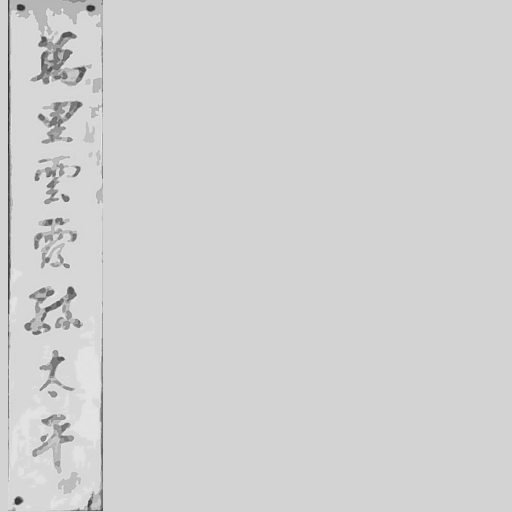 萬里雲霞太平